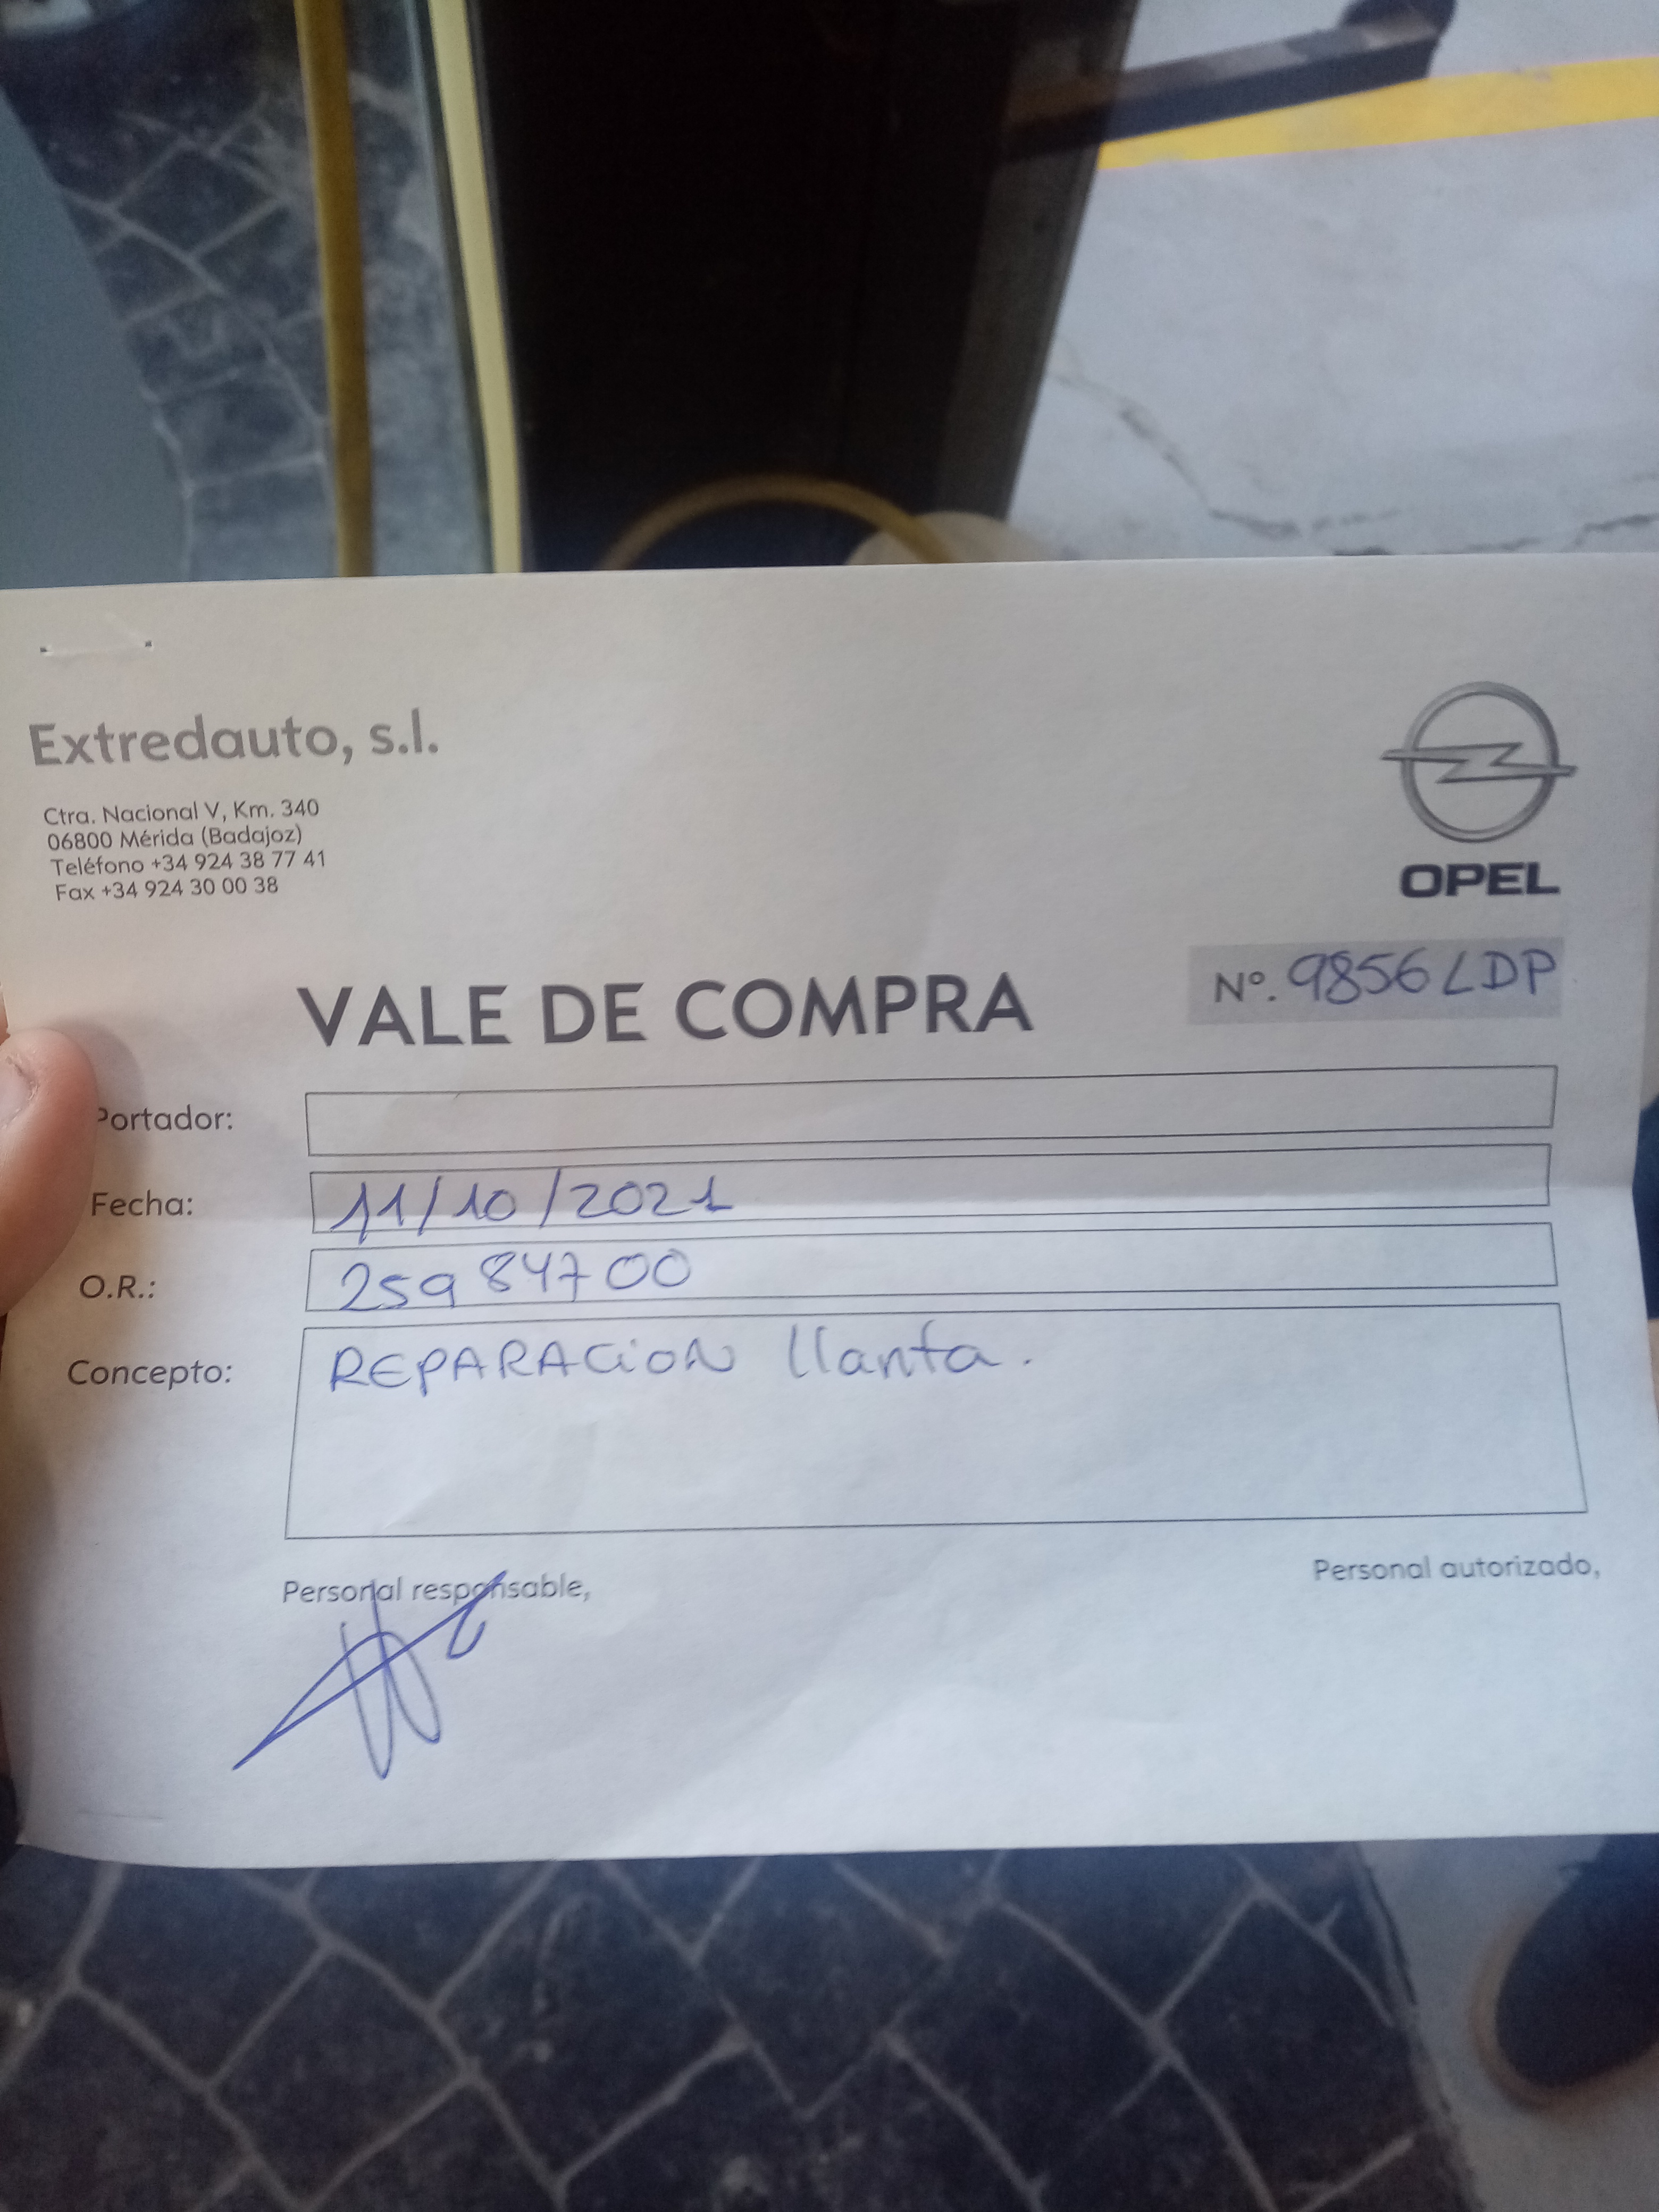 Extredauto, s.l.
Ctra. Nacional V, Km. 340
06800 Mérida (Badajoz)
Teléfono +34 924 38 77 41
Fax +34 924 30 00 38
OPEL
VALE DE COMPRA
Nº. 9856LDP
Portador:
Fecha: 11/10/2021
O.R.: 25984700
Concepto: REPARACiON llanta.
Personal responsable,
Personal autorizado,